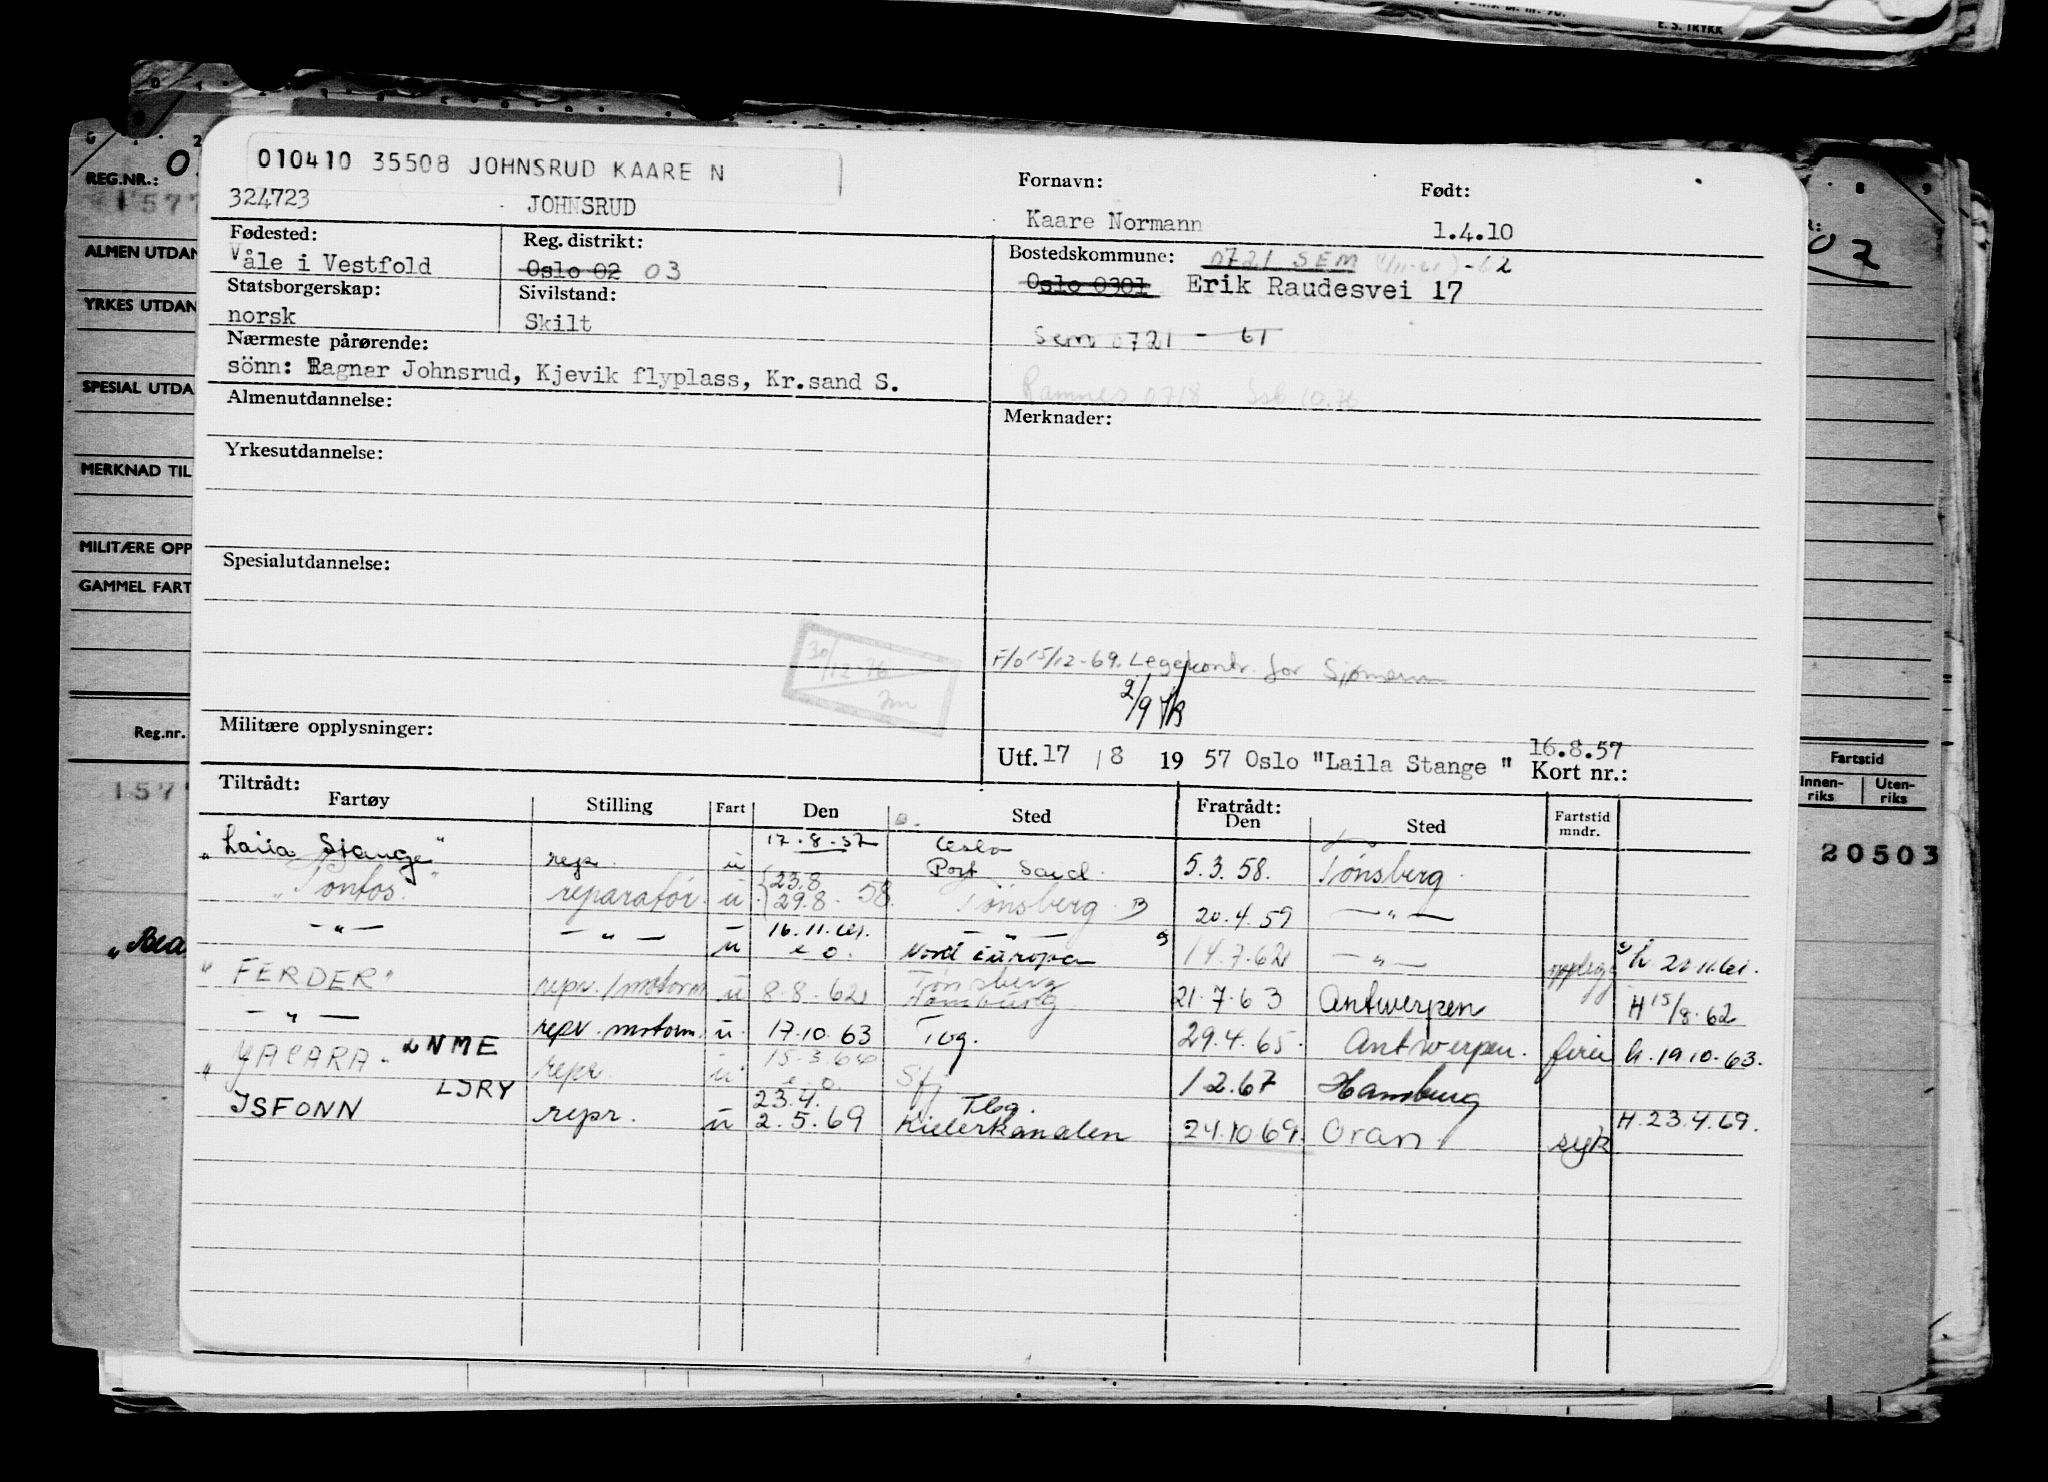 E. S. TRYKK
REG.NR.:
ALMEN UTDAN
YRKES UTDAN
SPESIAL UTDA
MERKNAD TIL
MILITÆRE OPP
GAMMEL FART
Reg.nr.
Fartstid
Innen-riks Uten-riks
20503
010410 35508 JOHNSRUD KAARE N
324723 JOHNSRUD
Fornavn: Født:
Kaare Normann 1.4.10
Fødested: Reg. distrikt: Bostedskommune: 0721 SEM -62
Våle i Vestfold Oslo 02 03 Oslo 0301 Erik Raudesvei 17
Statsborgerskap: Sivilstand:
norsk Skilt Sem 0721 - 61
Nærmeste pårørende:
sönn: Ragnar Johnsrud, Kjevik flyplass, Kr.sand S.
Ramnes 0718 Ssb 10.76
Almenutdannelse: Merknader:
Yrkesutdannelse:
Spesialutdannelse:
30/12-76
F/o 15/12-69. Legekontr. for Sjømenn
2/9
Militære opplysninger:
Utf. 17 / 8 1957 Oslo "Laila Stange " 16.8.57
Kort nr.:
Tiltrådt: Fratrådt:
Fartøy Stilling Fart Den Sted Den Sted Fartstid mndr.
"Laila Stange" repr. u 17.8.57 Oslo Port Said 5.3.58. Tønsberg
"Tonfos." reparatør. u 23.8 29.8. 58. Tønsberg B 20.4.59 — " —
— " — — " — u 16.11.61. e o. Nord Europa 14.7.62 — " — opplegg h. 20.11.61.
"FERDER" repr./motorm u 8.8.62 Tønsberg Hamburg 21.7.63 Antwerpen H 15/8.62
— " — repr. motorm. u. 17.10.63 Tbg. 29.4.65. Antwerpen. ferie h. 19.10.63.
"YACARA- LNME repr. u 15.3.66 e o Sfj 1.2.67 Hamburg
ISFONN LJRY repr. u 23.4. 2.5.69 Tbg. Kielerkanalen 24.10.69. Oran. syk H. 23.4.69.